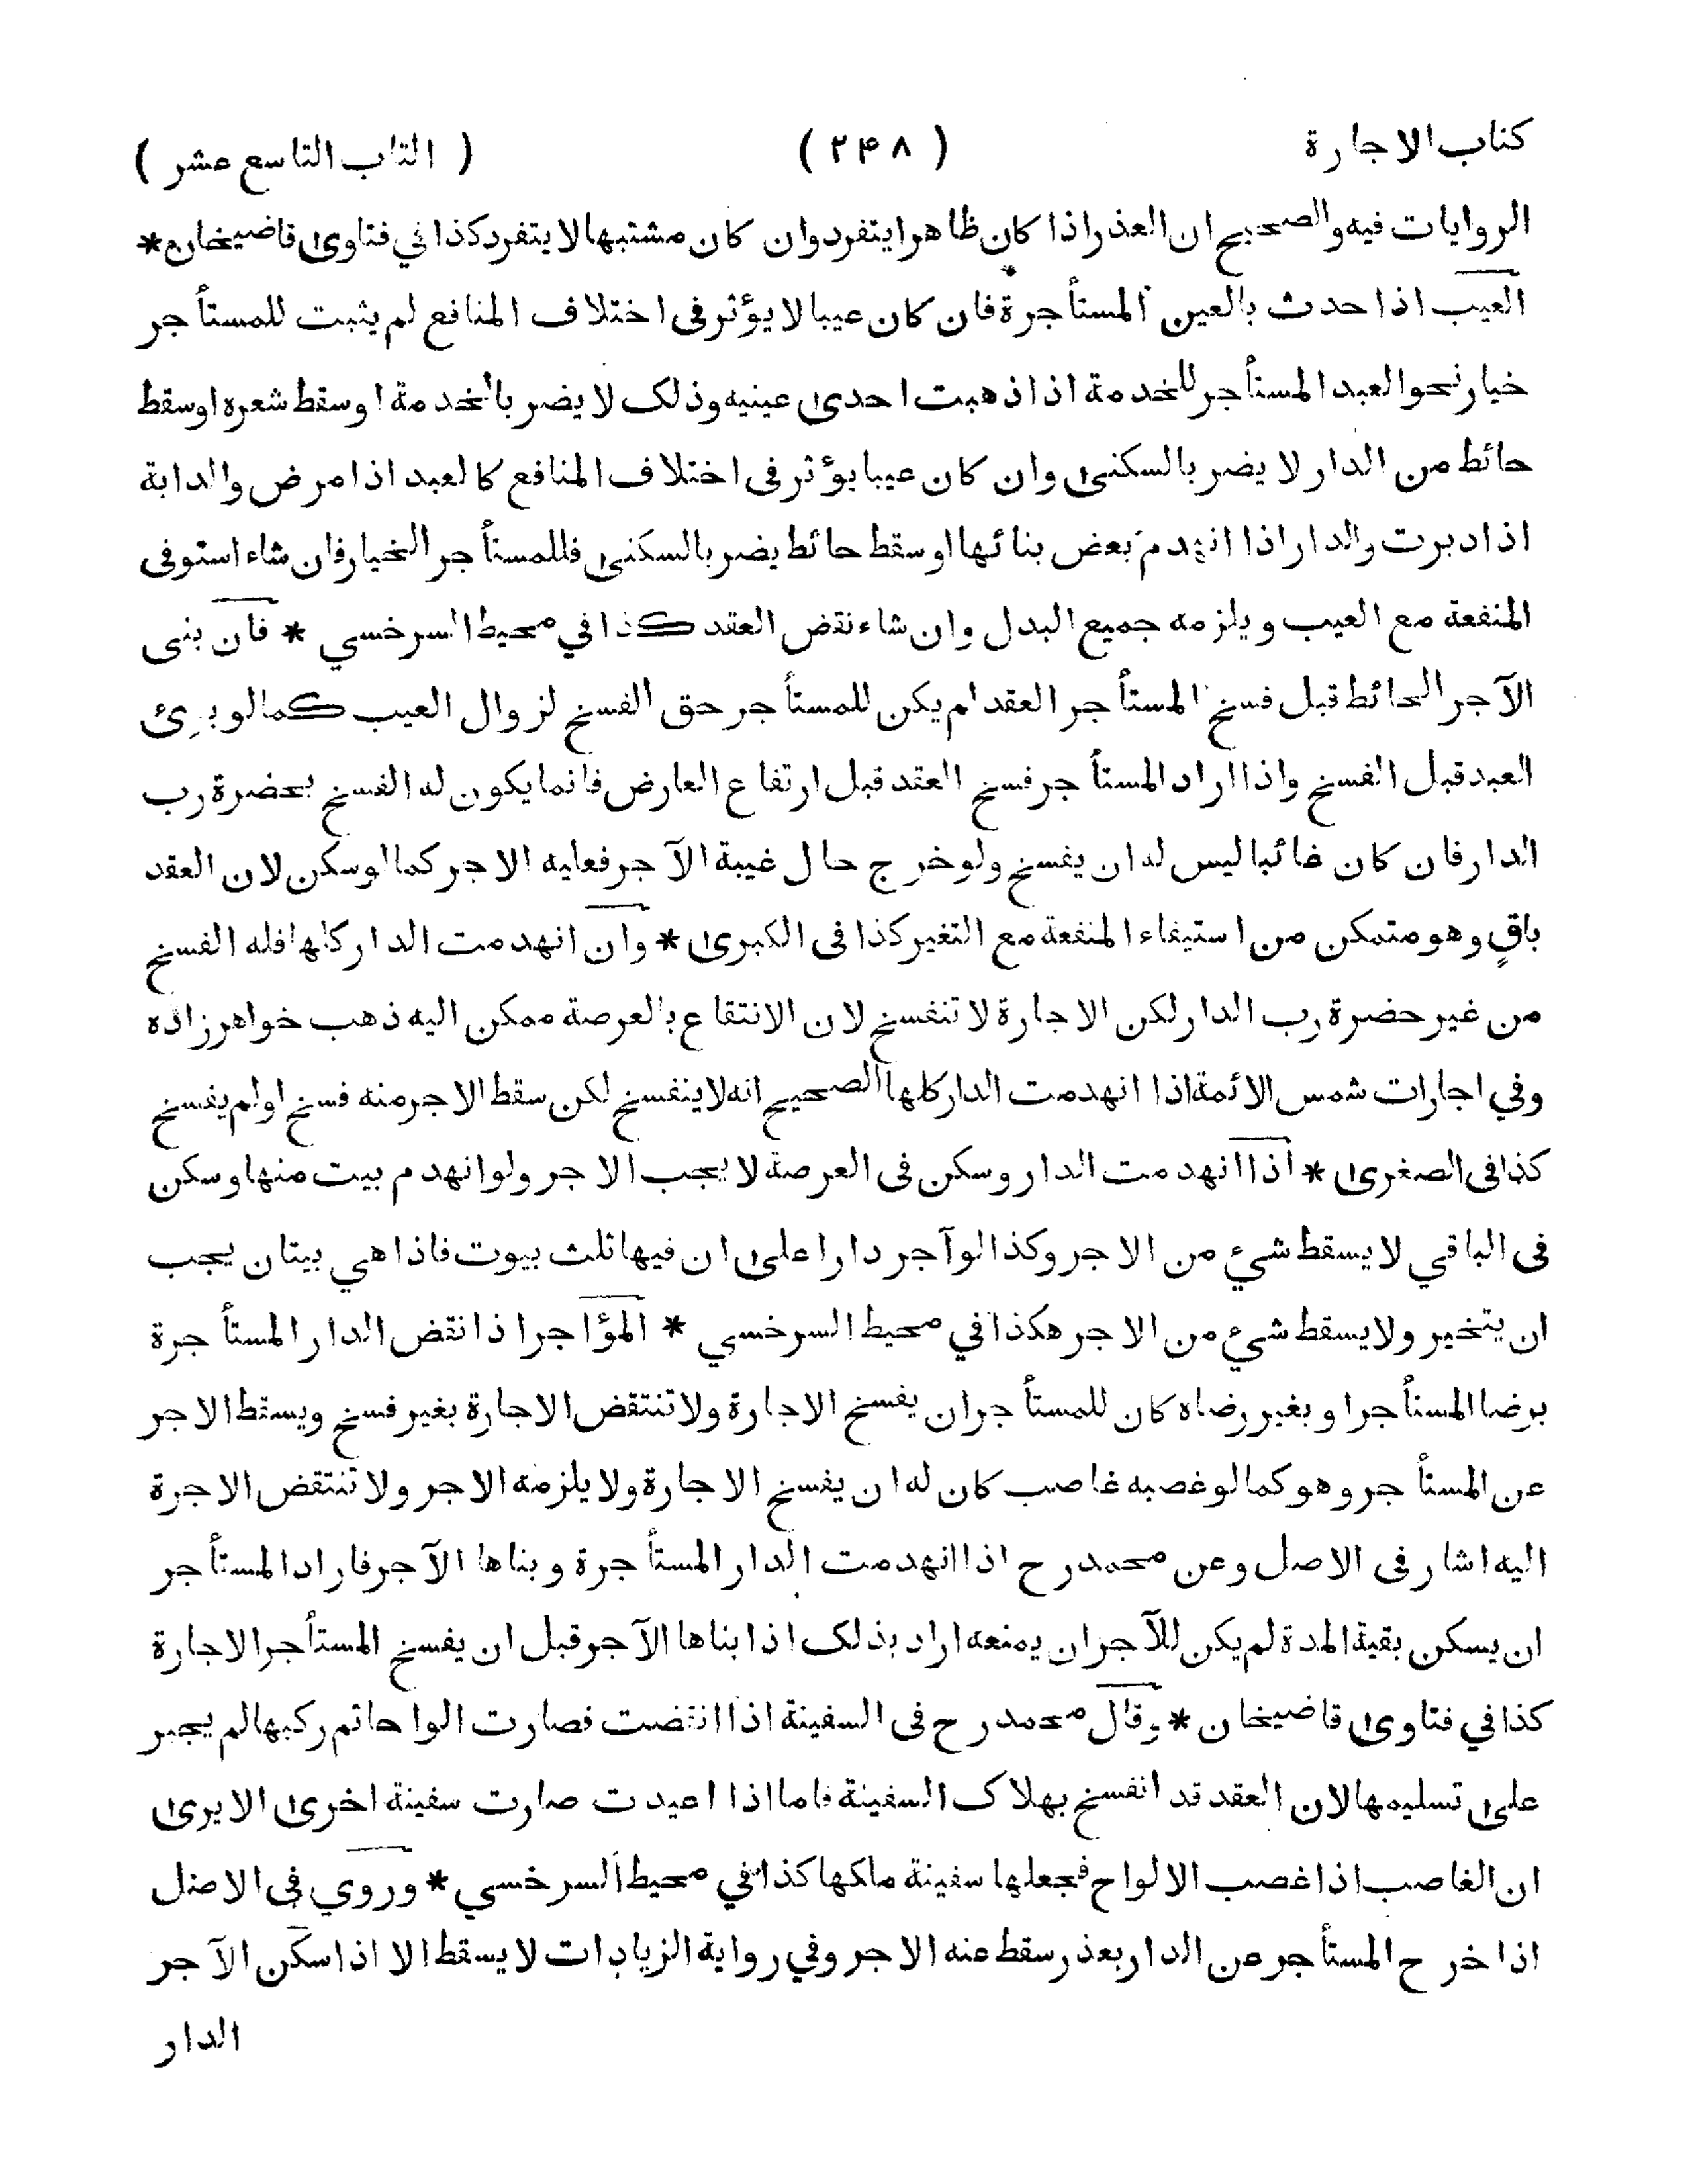 كتاب الاجارة ( ٢٤٨ ) ( الباب التاسع عشر )
الروايات فيه والصحيح ان العذر اذا كان ظاهرا يتفرد وان كان مشتبها لا يتفرد كذا في فتاوى قاضيخان *
العيب اذا حدث بالعين المستأجرة فان كان عيبا لا يؤثر فى اختلاف المنافع لم يثبت للمستأجر
خيار نحو العبد المستأجر للخدمة اذا ذهبت احدى عينيه وذلك لا يضر بالخدمة او سقط شعره او سقط
حائط من الدار لا يضر بالسكنى وان كان عيبا يؤثر فى اختلاف المنافع كالعبد اذا مرض والدابة
اذا دبرت والدار اذا انهدم بعض بنائها او سقط حائط يضر بالسكنى فللمستأجر الخيار فان شاء استوفى
المنفعة مع العيب ويلزمه جميع البدل وان شاء نقض العقد كذا في محيط السرخسي * فان بنى
الآجر الحائط قبل فسخ المستأجر العقد لم يكن للمستأجر حق الفسخ لزوال العيب كما لو برئ
العبد قبل الفسخ واذا اراد المستأجر فسخ العقد قبل ارتفاع العارض فانما يكون له الفسخ بحضرة رب
الدار فان كان غائبا ليس له ان يفسخ ولو خرج حال غيبة الآجر فعليه الاجر كما لو سكن لان العقد
باقٍ وهو متمكن من استيفاء المنفعة مع التغير كذا فى الكبرى * وان انهدمت الدار كلها فله الفسخ
من غير حضرة رب الدار لكن الاجارة لا تنفسخ لان الانتفاع بالعرصة ممكن اليه ذهب خواهرزاده
وفي اجارات شمس الائمة اذا انهدمت الدار كلها الصحيح انه لا ينفسخ لكن سقط الاجر منه فسخ او لم يفسخ
كذا فى الصغرى * اذا انهدمت الدار وسكن فى العرصة لا يجب الاجر ولو انهدم بيت منها وسكن
فى الباقي لا يسقط شيء من الاجر وكذا لو آجر دارا على ان فيها ثلث بيوت فاذا هي بيتان يجب
ان يتخير ولا يسقط شيء من الاجر هكذا في محيط السرخسي * المؤاجر اذا نقض الدار المستأجرة
برضا المستأجر او بغير رضاه كان للمستأجر ان يفسخ الاجارة ولا تنتقض الاجارة بغير فسخ ويسقط الاجر
عن المستأجر وهو كما لو غصبه غاصب كان له ان يفسخ الاجارة ولا يلزمه الاجر ولا تنتقض الاجرة
اليه اشار فى الاصل وعن محمد رح اذا انهدمت الدار المستأجرة وبناها الآجر فاراد المستأجر
ان يسكن بقية المدة لم يكن للآجر ان يمنعه اراد بذلك اذا بناها الآجر قبل ان يفسخ المستأجر الاجارة
كذا في فتاوى قاضيخان * وقال محمد رح فى السفينة اذا انتقضت فصارت الواحا ثم ركبها لم يجبر
على تسليمها لان العقد قد انفسخ بهلاك السفينة فاما اذا اعيدت صارت سفينة اخرى الا يرى
ان الغاصب اذا غصب الالواح فجعلها سفينة ملكها كذا في محيط السرخسي * وروي فى الاصل
اذا خرج المستأجر عن الدار بعذر سقط عنه الاجر وفي رواية الزيادات لا يسقط الا اذا سكن الآجر
الدار